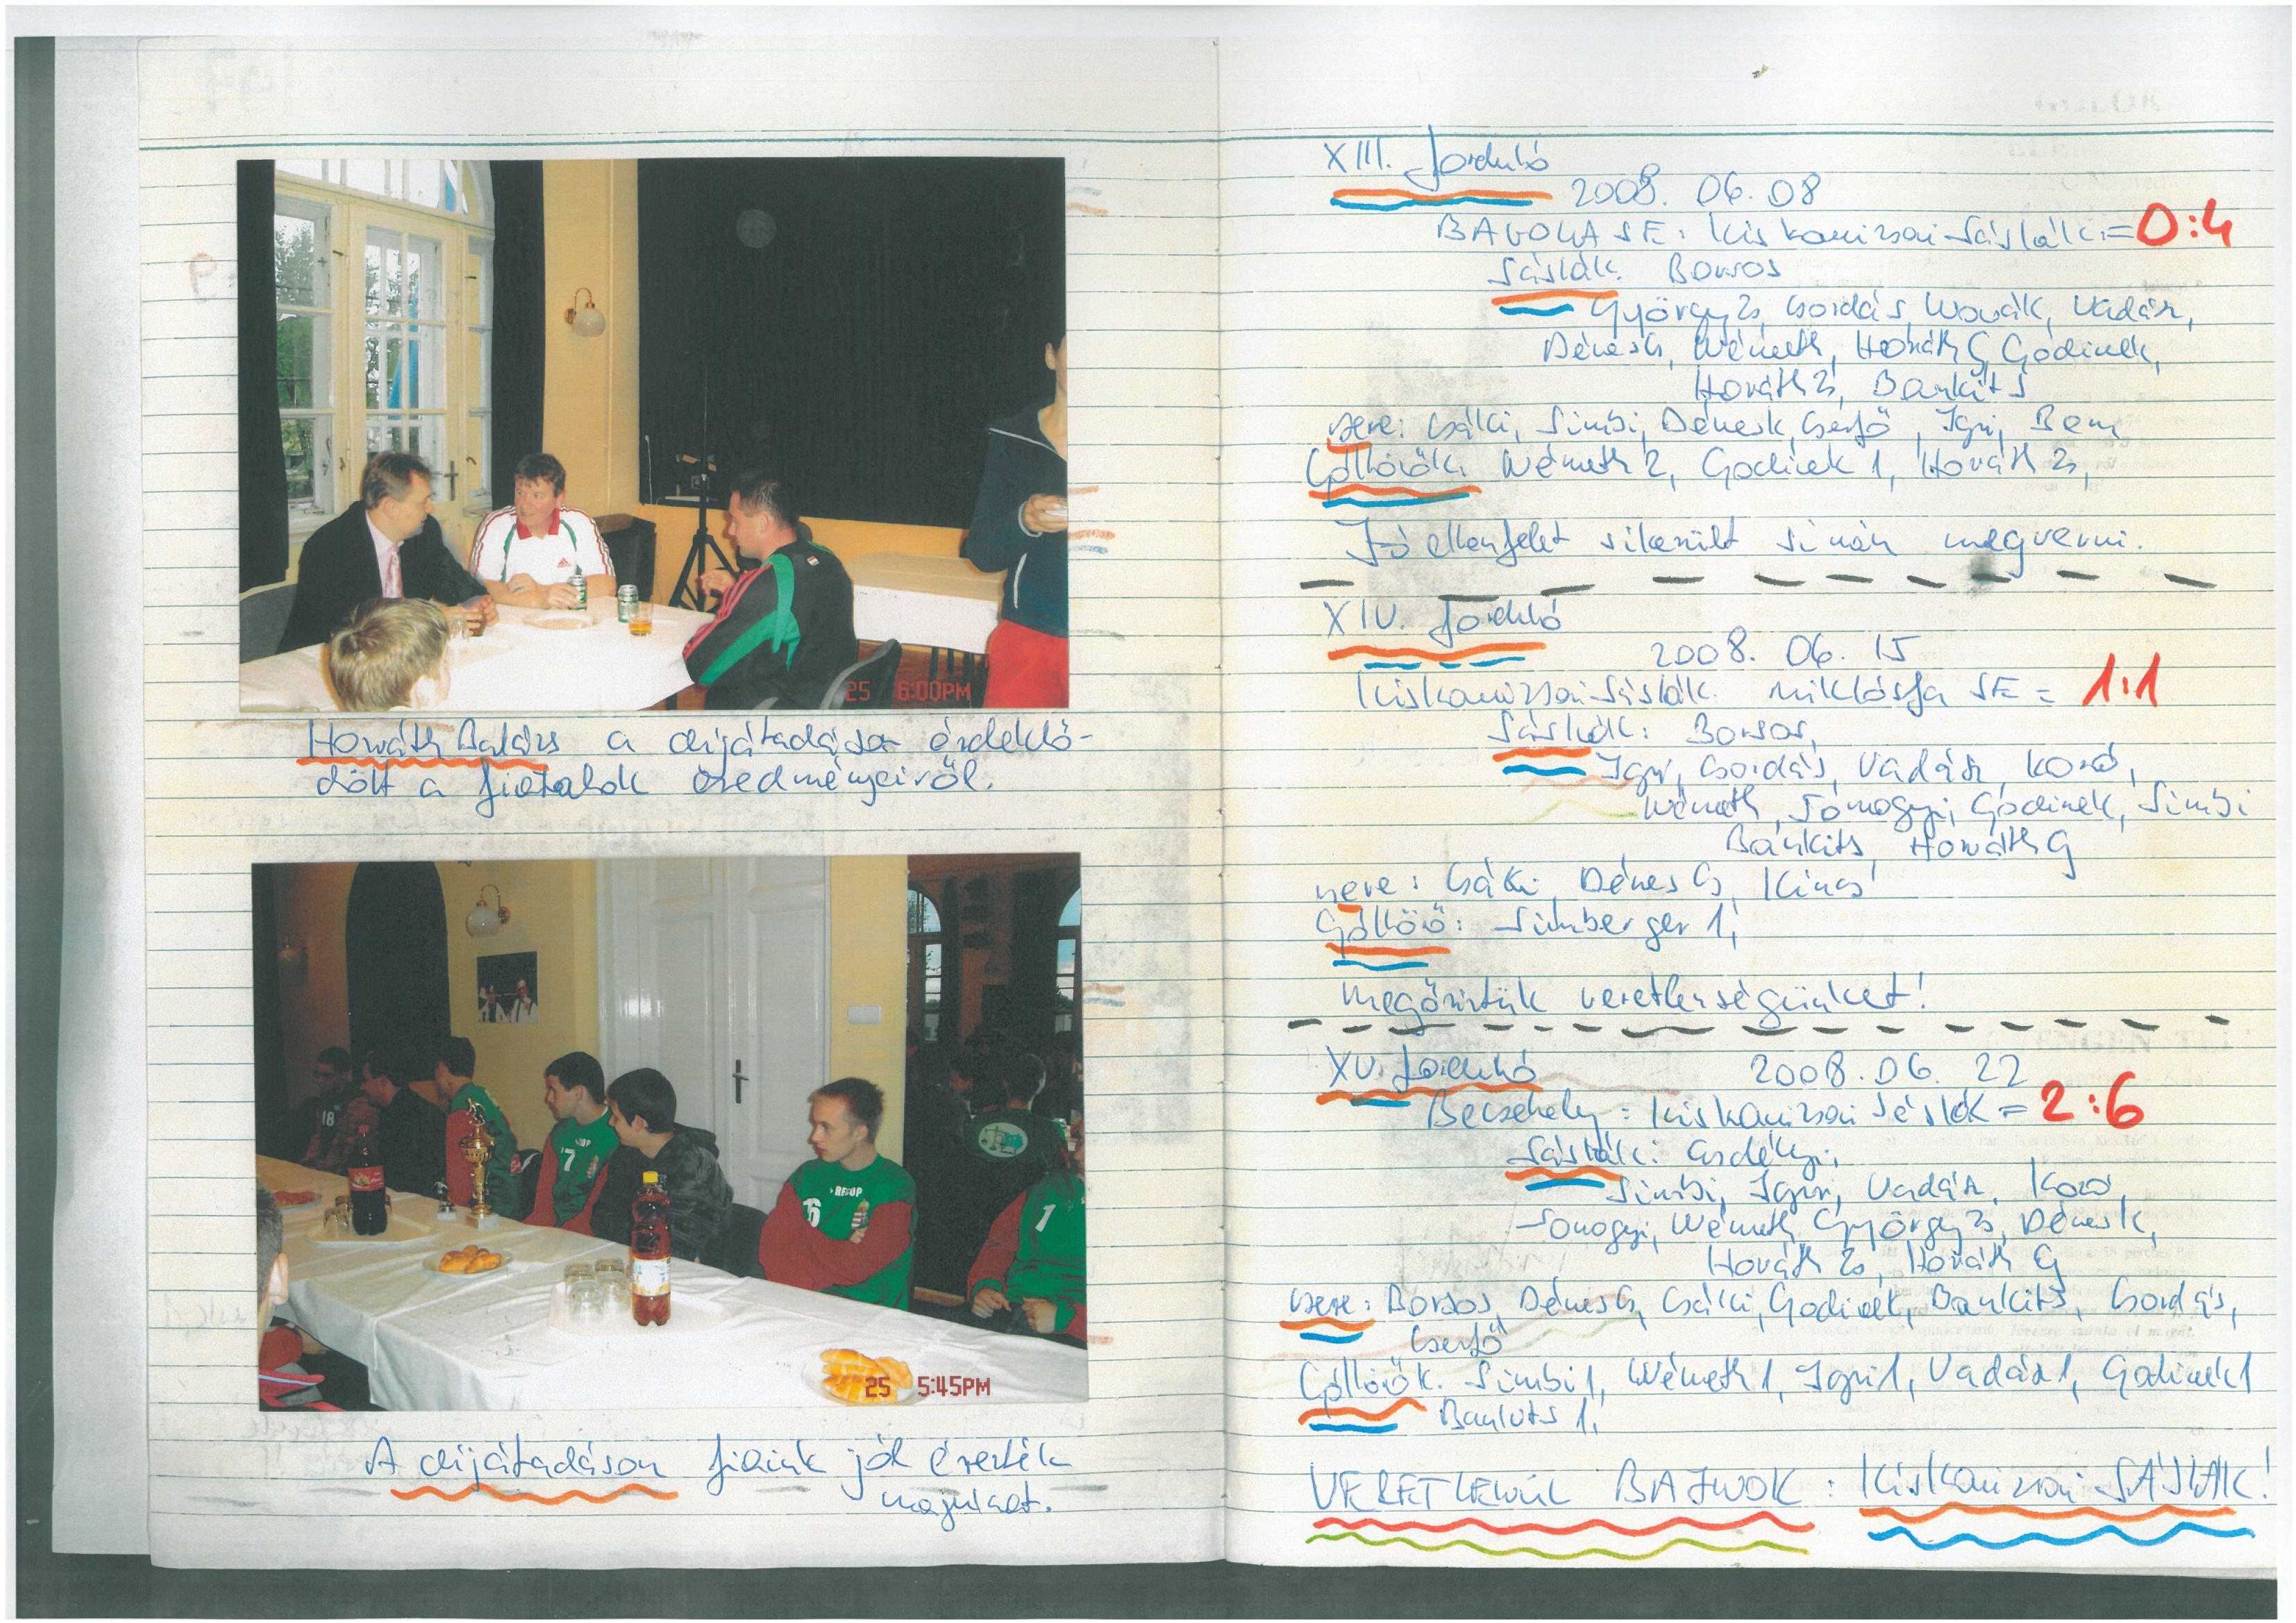 25 6:00PM
Horváth Balázs a díjátadáson érdeklő-
dött a fiatalok eredményeiről.
18
7
REGUP
6
1
25 5:45PM
A díjátadáson fiaink jól érezték
magukat.
XIII. forduló
2008. 06. 08
BAGOLA SE : Kiskanizsai Sáskák = 0:4
Sáskák: Borsos
György Zs, Csordás, Novák, Vadász,
Dénes G, Németh, Horváth G, Godinek,
Horváth Zs, Bankits
csere: Csáki, Simbi, Dénes K, Cserfő, Igri, Bem
Góllövők: Németh 2, Godinek 1, Horváth Zs,
Jó ellenfelet sikerült simán megverni.
XIV. forduló
2008. 06. 15
Kiskanizsai Sáskák : Miklósfa SE = 1:1
Sáskák: Borsos,
Igri, Csordás, Vadász, Kozó,
Németh, Somogyi, Godinek, Simbi
Bánkits, Horváth G
csere: Csáki, Dénes G, Kincs
Góllövő: Simberger 1,
Megőriztük veretlenségünket!
XV. forduló 2008. 06. 22
Becsehely : Kiskanizsai Sáskák = 2:6
Sáskák: Erdélyi,
Simbi, Igri, Vadász, Kozó,
Somogyi, Németh, György Zs, Dénes K,
Horváth Zs, Horváth G
csere: Borsos, Dénes G, Csáki, Godinek, Bankits, Csordás,
Cserfő
Góllövők: Simbi 1, Németh 1, Igri 1, Vadász 1, Godinek 1
Bankits 1,
VERETLENÜL BAJNOK : Kiskanizsai SÁSKÁK!